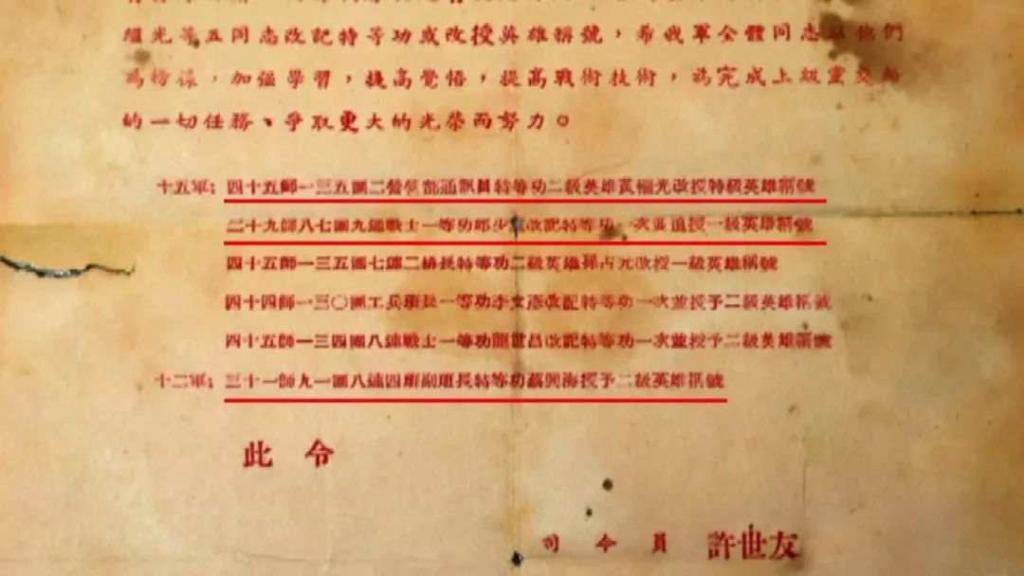 繼光等五同志改記特等功或改授英雄稱號，希我軍全體同志以他們
為榜樣，加强學習，提高覺悟，提高戰術技術，為完成上級重交給
的一切任務、爭取更大的光榮而努力。
十五軍：四十五師一三五團二營 通訊員特等功二級英雄黃繼光改授特級英雄稱號
二十九師八七團九連戰士一等功邱少雲改記特等功一次並追授一級英雄稱號
四十五師一三五團七連二排長特等功二級英雄孫占元改授一級英雄稱號
四十四師一三〇團工兵班長一等功李文彥改記特等功一次並授予二級英雄稱號
四十五師一三四團八連戰士一等功龍世昌改記特等功一次並授予二級英雄稱號
十二軍：三十一師九一團八連四班副班長特等功 興海授予二級英雄稱號
此令
司令員 許世友